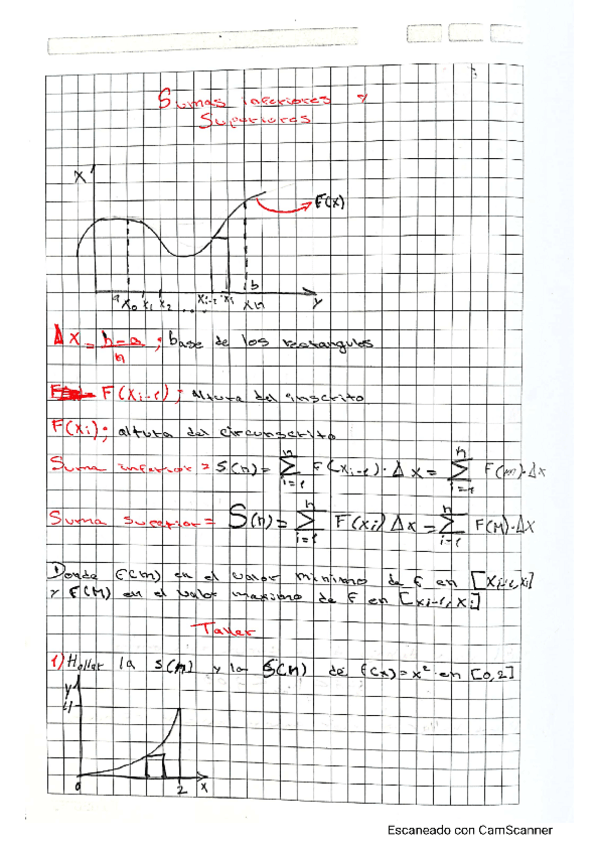 Sumas inferiores y
Superiores
X
F(x)
a b
x₀ x₁ x₂ .... xᵢ₋₁ xᵢ xn y
Δx = b-a / n ; base de los rectangulos
F(xᵢ₋₁) ; altura del inscrito
F(xᵢ) ; altura del circunscrito
Suma inferior = s(n) = n Σ i=1 F(xᵢ₋₁)·Δx = n Σ i=1 F(m)·Δx
Suma superior = S(n) = n Σ i=1 F(xᵢ) Δx = n Σ i=1 F(M)·Δx
Donde F(m) en el valor minimo de F en [xᵢ₋₁, xᵢ]
y F(M) en el valor maximo de F en [xᵢ₋₁, xᵢ]
Taller
1) Hallar la s(n) y la S(n) de f(x) = x² en [0,2]
y
4
0 2 x
Escaneado con CamScanner